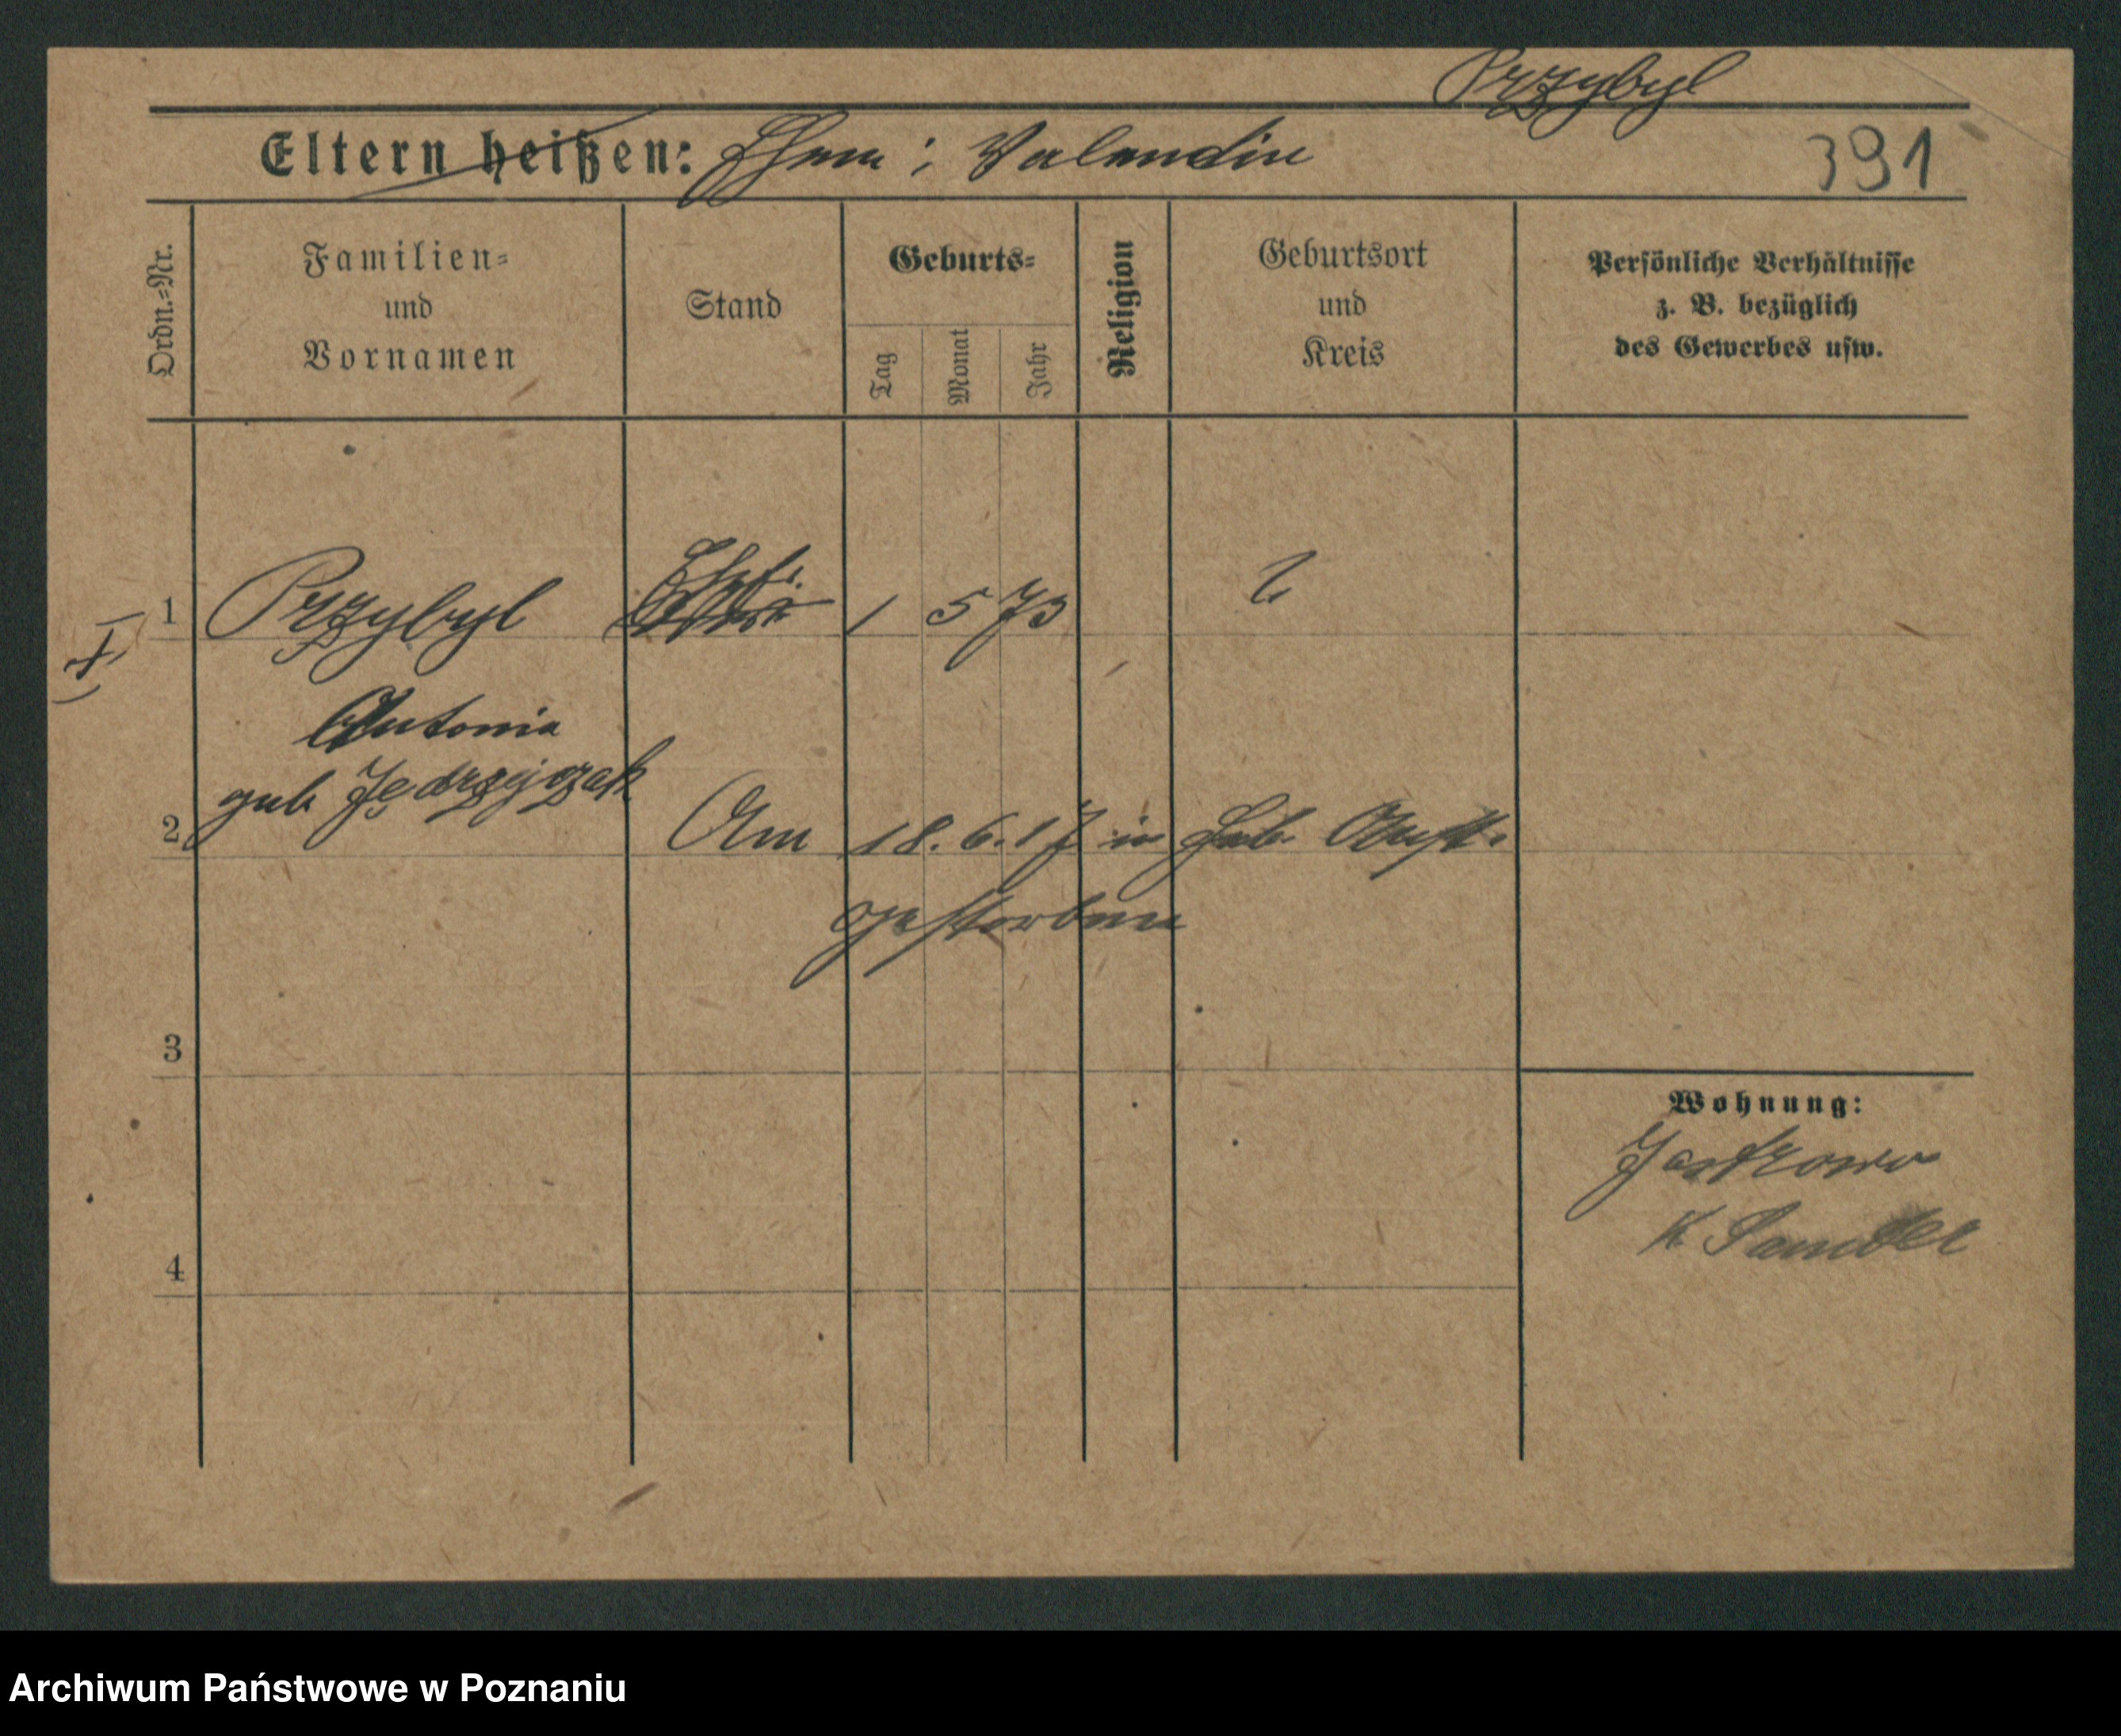 Przybyl
Eltern heißen: Ehem: Valendin
391
Ordn.=Nr.
Familien=
und
Vornamen
Stand
Geburts=
Tag
Monat
Jahr
Religion
Geburtsort
und
Kreis
Persönliche Verhältnisse
z. B. bezüglich
des Gewerbes usw.
1 Przybyl Ehefr. 1 5 73
Antonia
geb. Jędrzejczak
2 Am 18. 6. 17 in
gestorben
3
Wohnung:
Jastrowo
K Samter
4
Archiwum Państwowe w Poznaniu